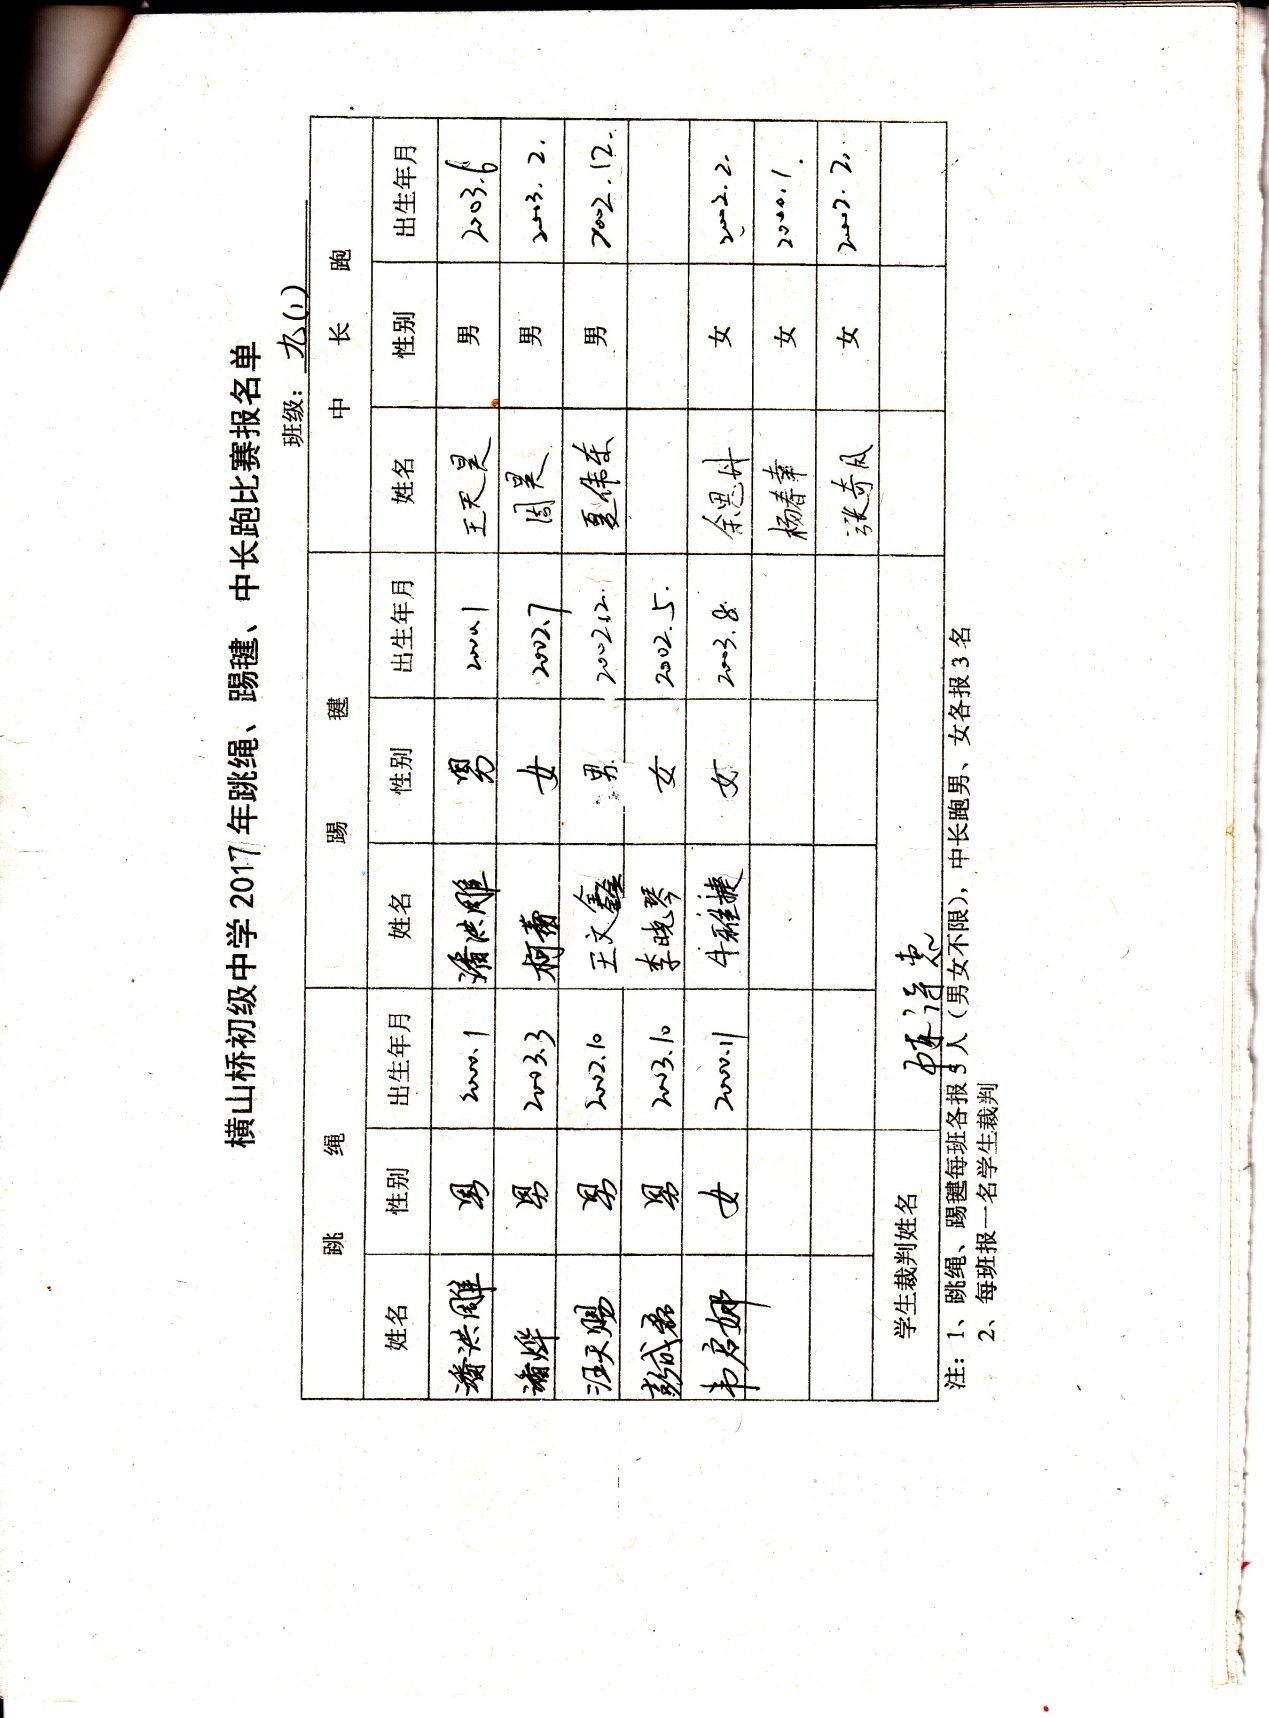 横山桥初级中学2017年跳绳、踢毽、中长跑比赛报名单
班级：九(1)
跳 绳 踢 毽 中 长 跑
姓名 性别 出生年月 姓名 性别 出生年月 姓名 性别 出生年月
潘洪雕 男 2000.1 潘洪雕 男 2000.1 王天昊 男 2003.6
潘烨 男 2003.3 柯蕾 女 2002.7 周昊 男 2003.2.
汪天赐 男 2002.10 王文鑫 男 2002.12. 夏伟东 男 2002.12.
彭成磊 男 2003.10 李晓琴 女 2002.5.
韦启娜 女 2000.11 牛雅捷 女 2003.8. 余思丹 女 2002.2.
杨春幸 女 2000.1.
张奇凤 女 2002.2.
学生裁判姓名
注：1、跳绳、踢毽每班各报5人（男女不限），中长跑男、女各报3名
2、每班报一名学生裁判